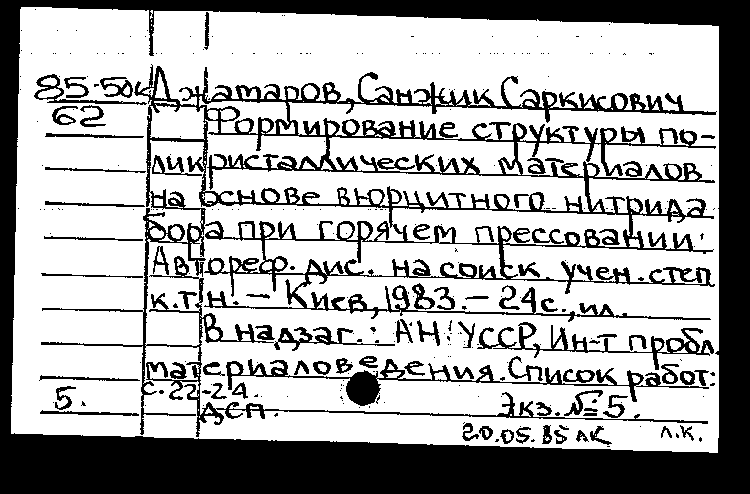 85-50к Джатаров, Санжик Саркисович
62 Формирование структуры по-
ликристаллических материалов
на основе вюрцитного нитрида
бора при горячем прессовании:
Автореф. дис. на соиск. учен. степ
к.т.н. – Киев, 1983. – 24 с., ил.
В надзаг.: АН УССР, Ин-т пробл.
материаловедения. Список работ:
с. 22-24.
5. ДСП. Экз. № 5.
20.05.85 лк л.к.